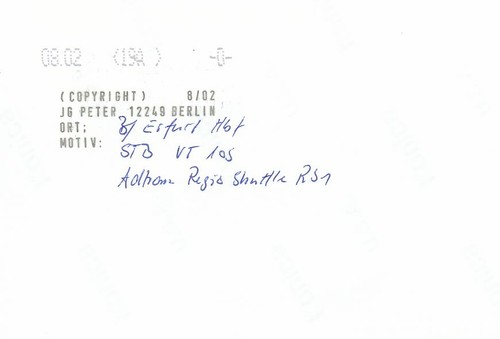 08.02 <19A > -0-
(COPYRIGHT) 8/02
JG PETER, 12249 BERLIN
ORT: Bf Erfurt Hbf
MOTIV: STB VT 105
Adtranz Regio Shuttle RS1